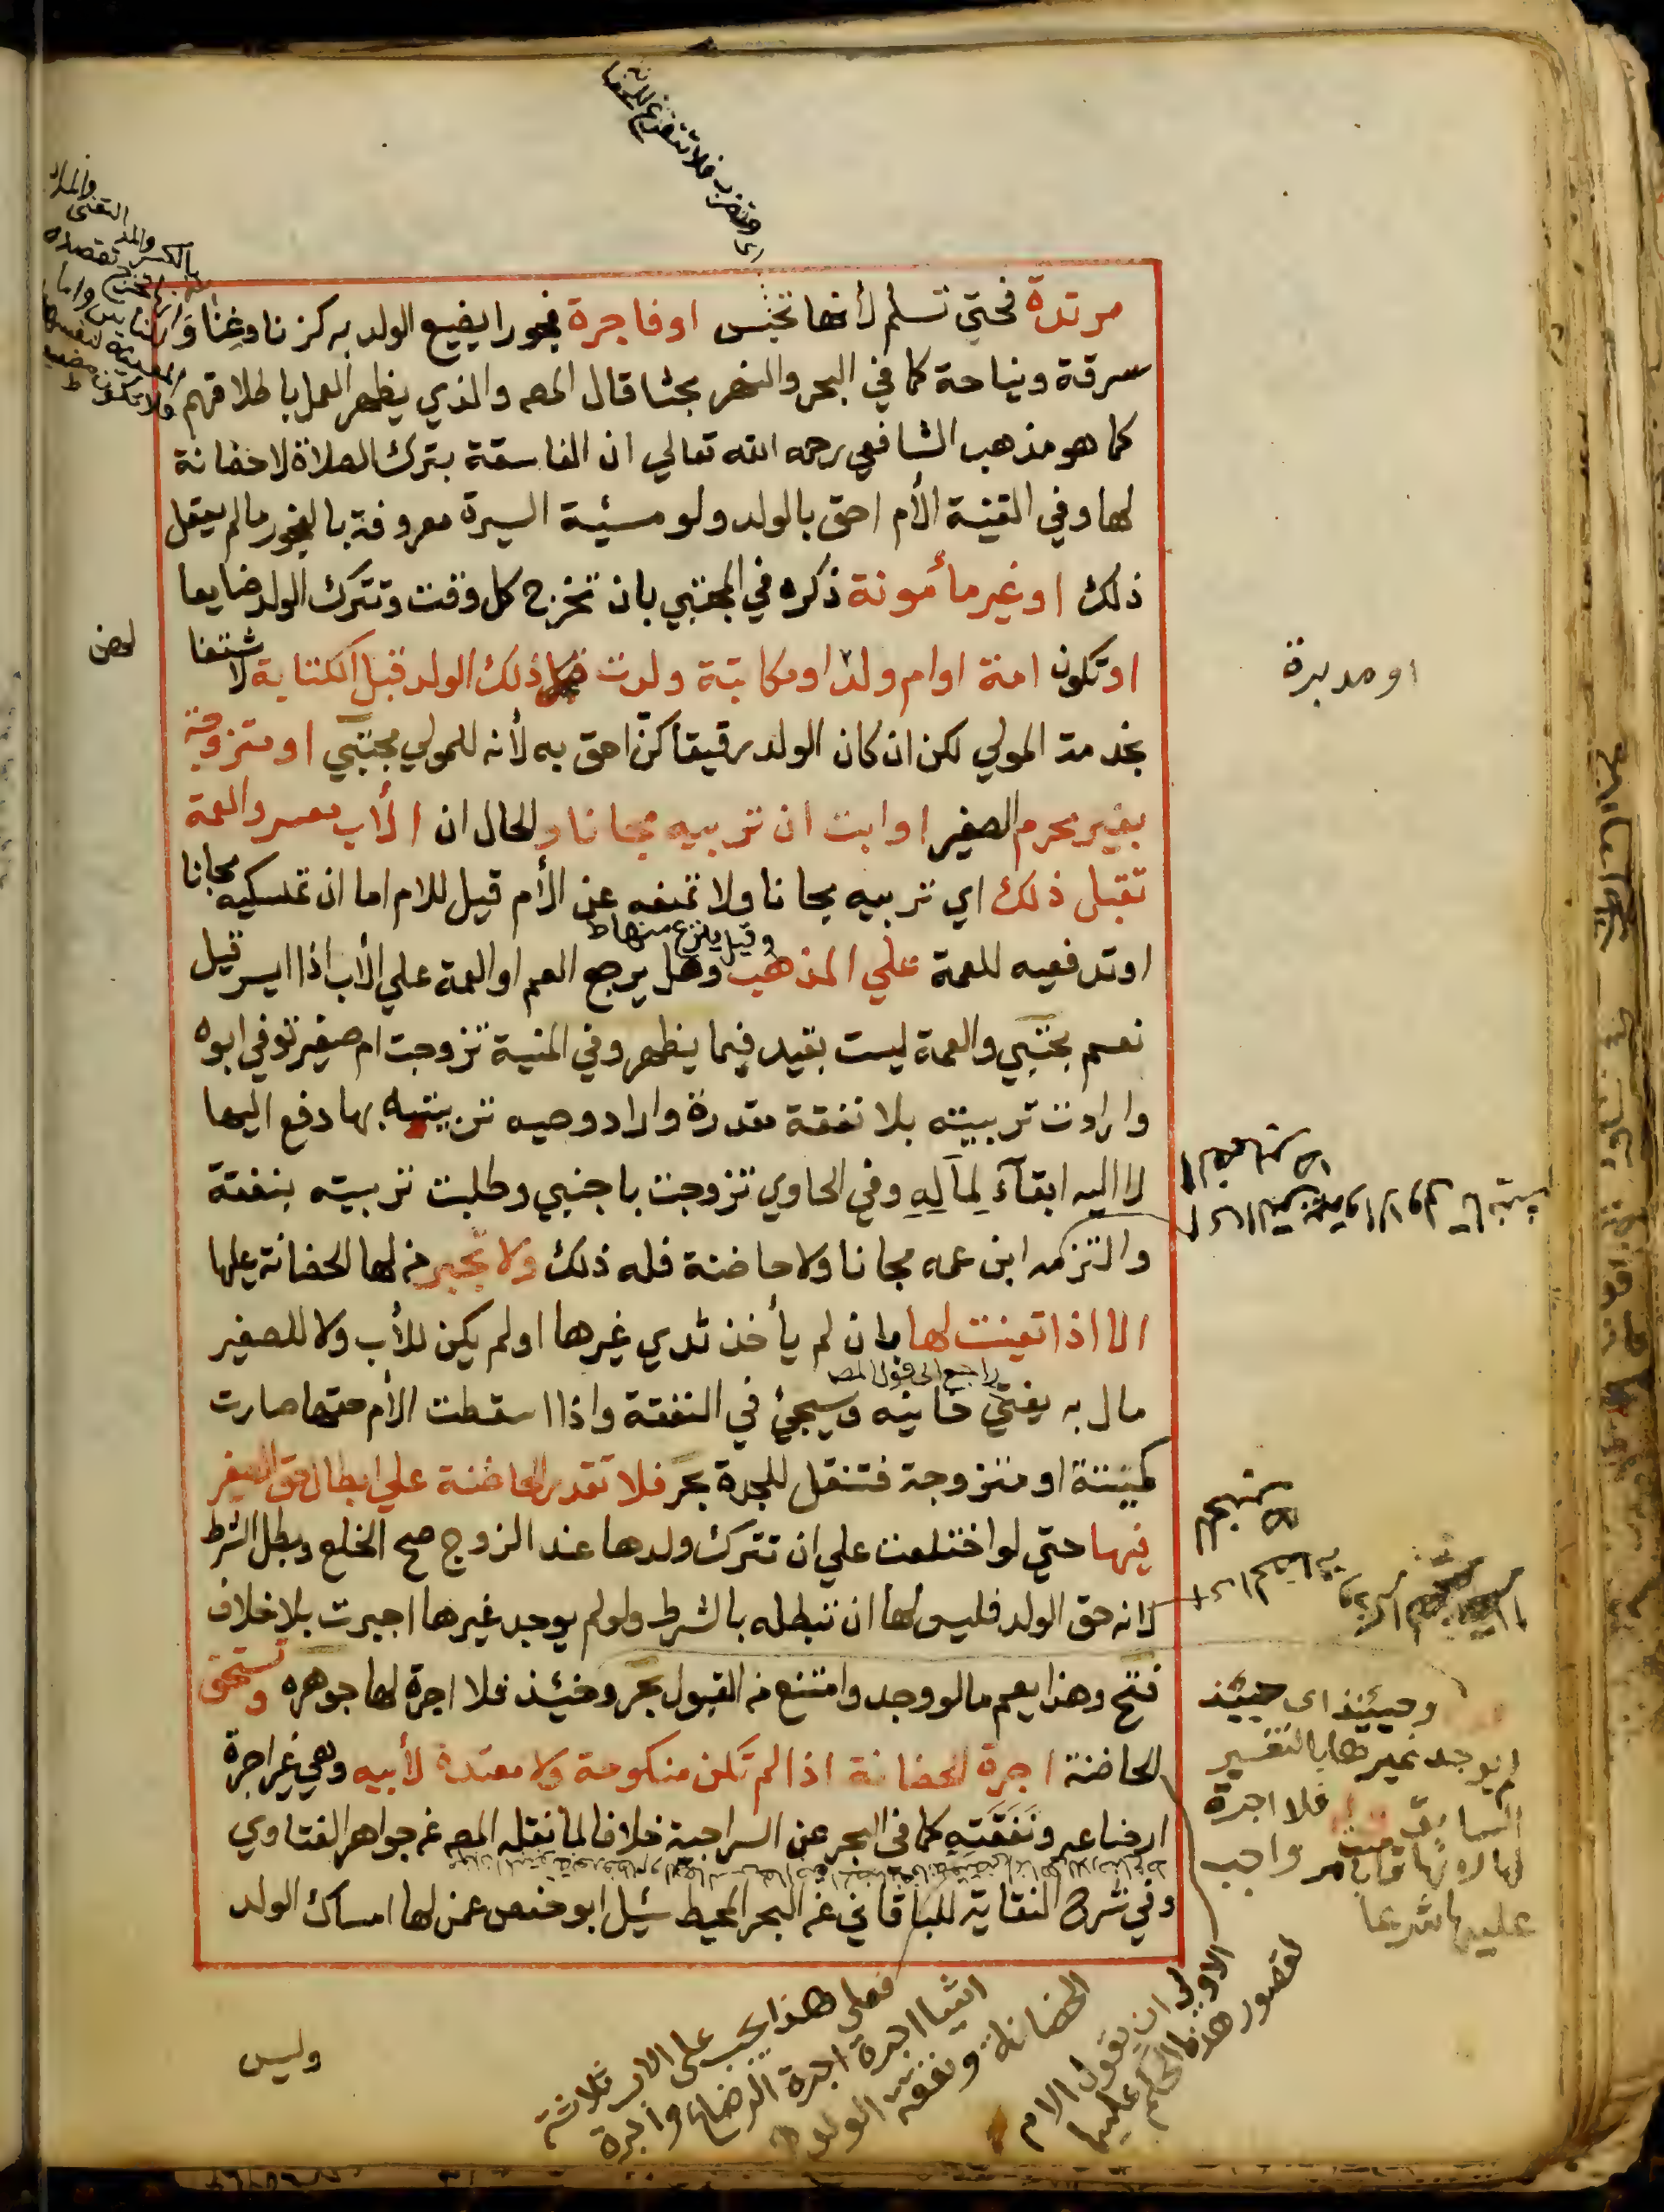 مرتدة فحتي تسلم لأنها تحبس او فاجرة فجورا يضيع الولد به كزنا وغنا و
سرقة ونياحة كما في البحر والنهر بحثا قال المصه والذي يظهر العمل باطلاقهم
كما هو مذهب الشافعي رحمه الله تعالي ان الفاسقة بترك الصلاة لا حضانة
لها وفي القنية الأم احق بالولد ولو مسيئة السيرة معروفة بالفجور ما لم يعقل
ذلك او غير مأمونة ذكره في المجتبي بان تخرج كل وقت وتترك الولد ضايعا
او تكون امة او ام ولد او مكاتبة ولدت ذلك الولد قبل الكتابة لاشتغا
لهن
او مدبرة
بخدمة المولي لكن ان كان الولد رقيقا كن احق به لأنه للمولي مجتبي او متزوجة
بغير محرم الصغير او ابت ان تربيه مجانا والحال ان الأب معسر والعمة
تقبل ذلك اي تربيه مجانا ولا تمنعه عن الأم قيل للام اما ان تمسكيه مجانا
او تدفعيه للعمة علي المذهب وهل يرجع العم او العمة علي الأب اذا ايسر قيل
وقيل ينزع منها ط
نعم مجتبي والعمة ليست بقيد فيما يظهر وفي المنية تزوجت ام صغير توفي ابوه
وارادت تربيته بلا نفقة مقدرة واراد وصيه تربيته بها دفع اليها
لا اليه ابقآء لماله وفي الحاوي تزوجت باجنبي وطلبت تربيته بنفقة
والتزمه ابن عمه مجانا ولا حاضنة فله ذلك ولا تجبر من لها الحضانة عليها
الا اذا تعينت لها بان لم يأخذ ثدي غيرها او لم يكن للأب ولا للصغير
راجع الى قول المصه
مال به يفتي خانيه وسيجئ في النفقة واذا اسقطت الأم حقها صارت
كميتة او متزوجة فتنتقل للجدة بحر فلا تقدر الحاضنة علي ابطال حق الصغير
فيها حتي لو اختلعت علي ان تترك ولدها عند الزوج صح الخلع وبطل الشرط
لانه حق الولد فليس لها ان تبطله بالشرط ولو لم يوجد غيرها اجبرت بلا خلاف
فتح وهذا يعم ما لو وجد وامتنع من القبول بحر وحينئذ فلا اجرة لها جوهره وتستحق
الحاضنة اجرة الحضانة اذا لم تكن منكوحة ولا معتدة لأبيه وهي غير اجرة
ارضاعه ونفقته كما في البحر عن السراجية خلافا لما نقله المصه عن جواهر الفتاوي
وفي شرح النقاية للباقاني عن البحر المحيط سئل ابو حفص عمن لها امساك الولد
وحينئذ اى حينئذ
لم يوجد غيرها بالتفسير
السابق فلا اجرة
لها لانها قامت بامر واجب
عليها شرعا
الاولى ان يقول الام
لقصور هذا الحكم عليها
فعلى هذا يجب على الاب ثلاثة
اشيا اجرة الرضاع واجرة
الحضانة ونفقة الولد
وليس